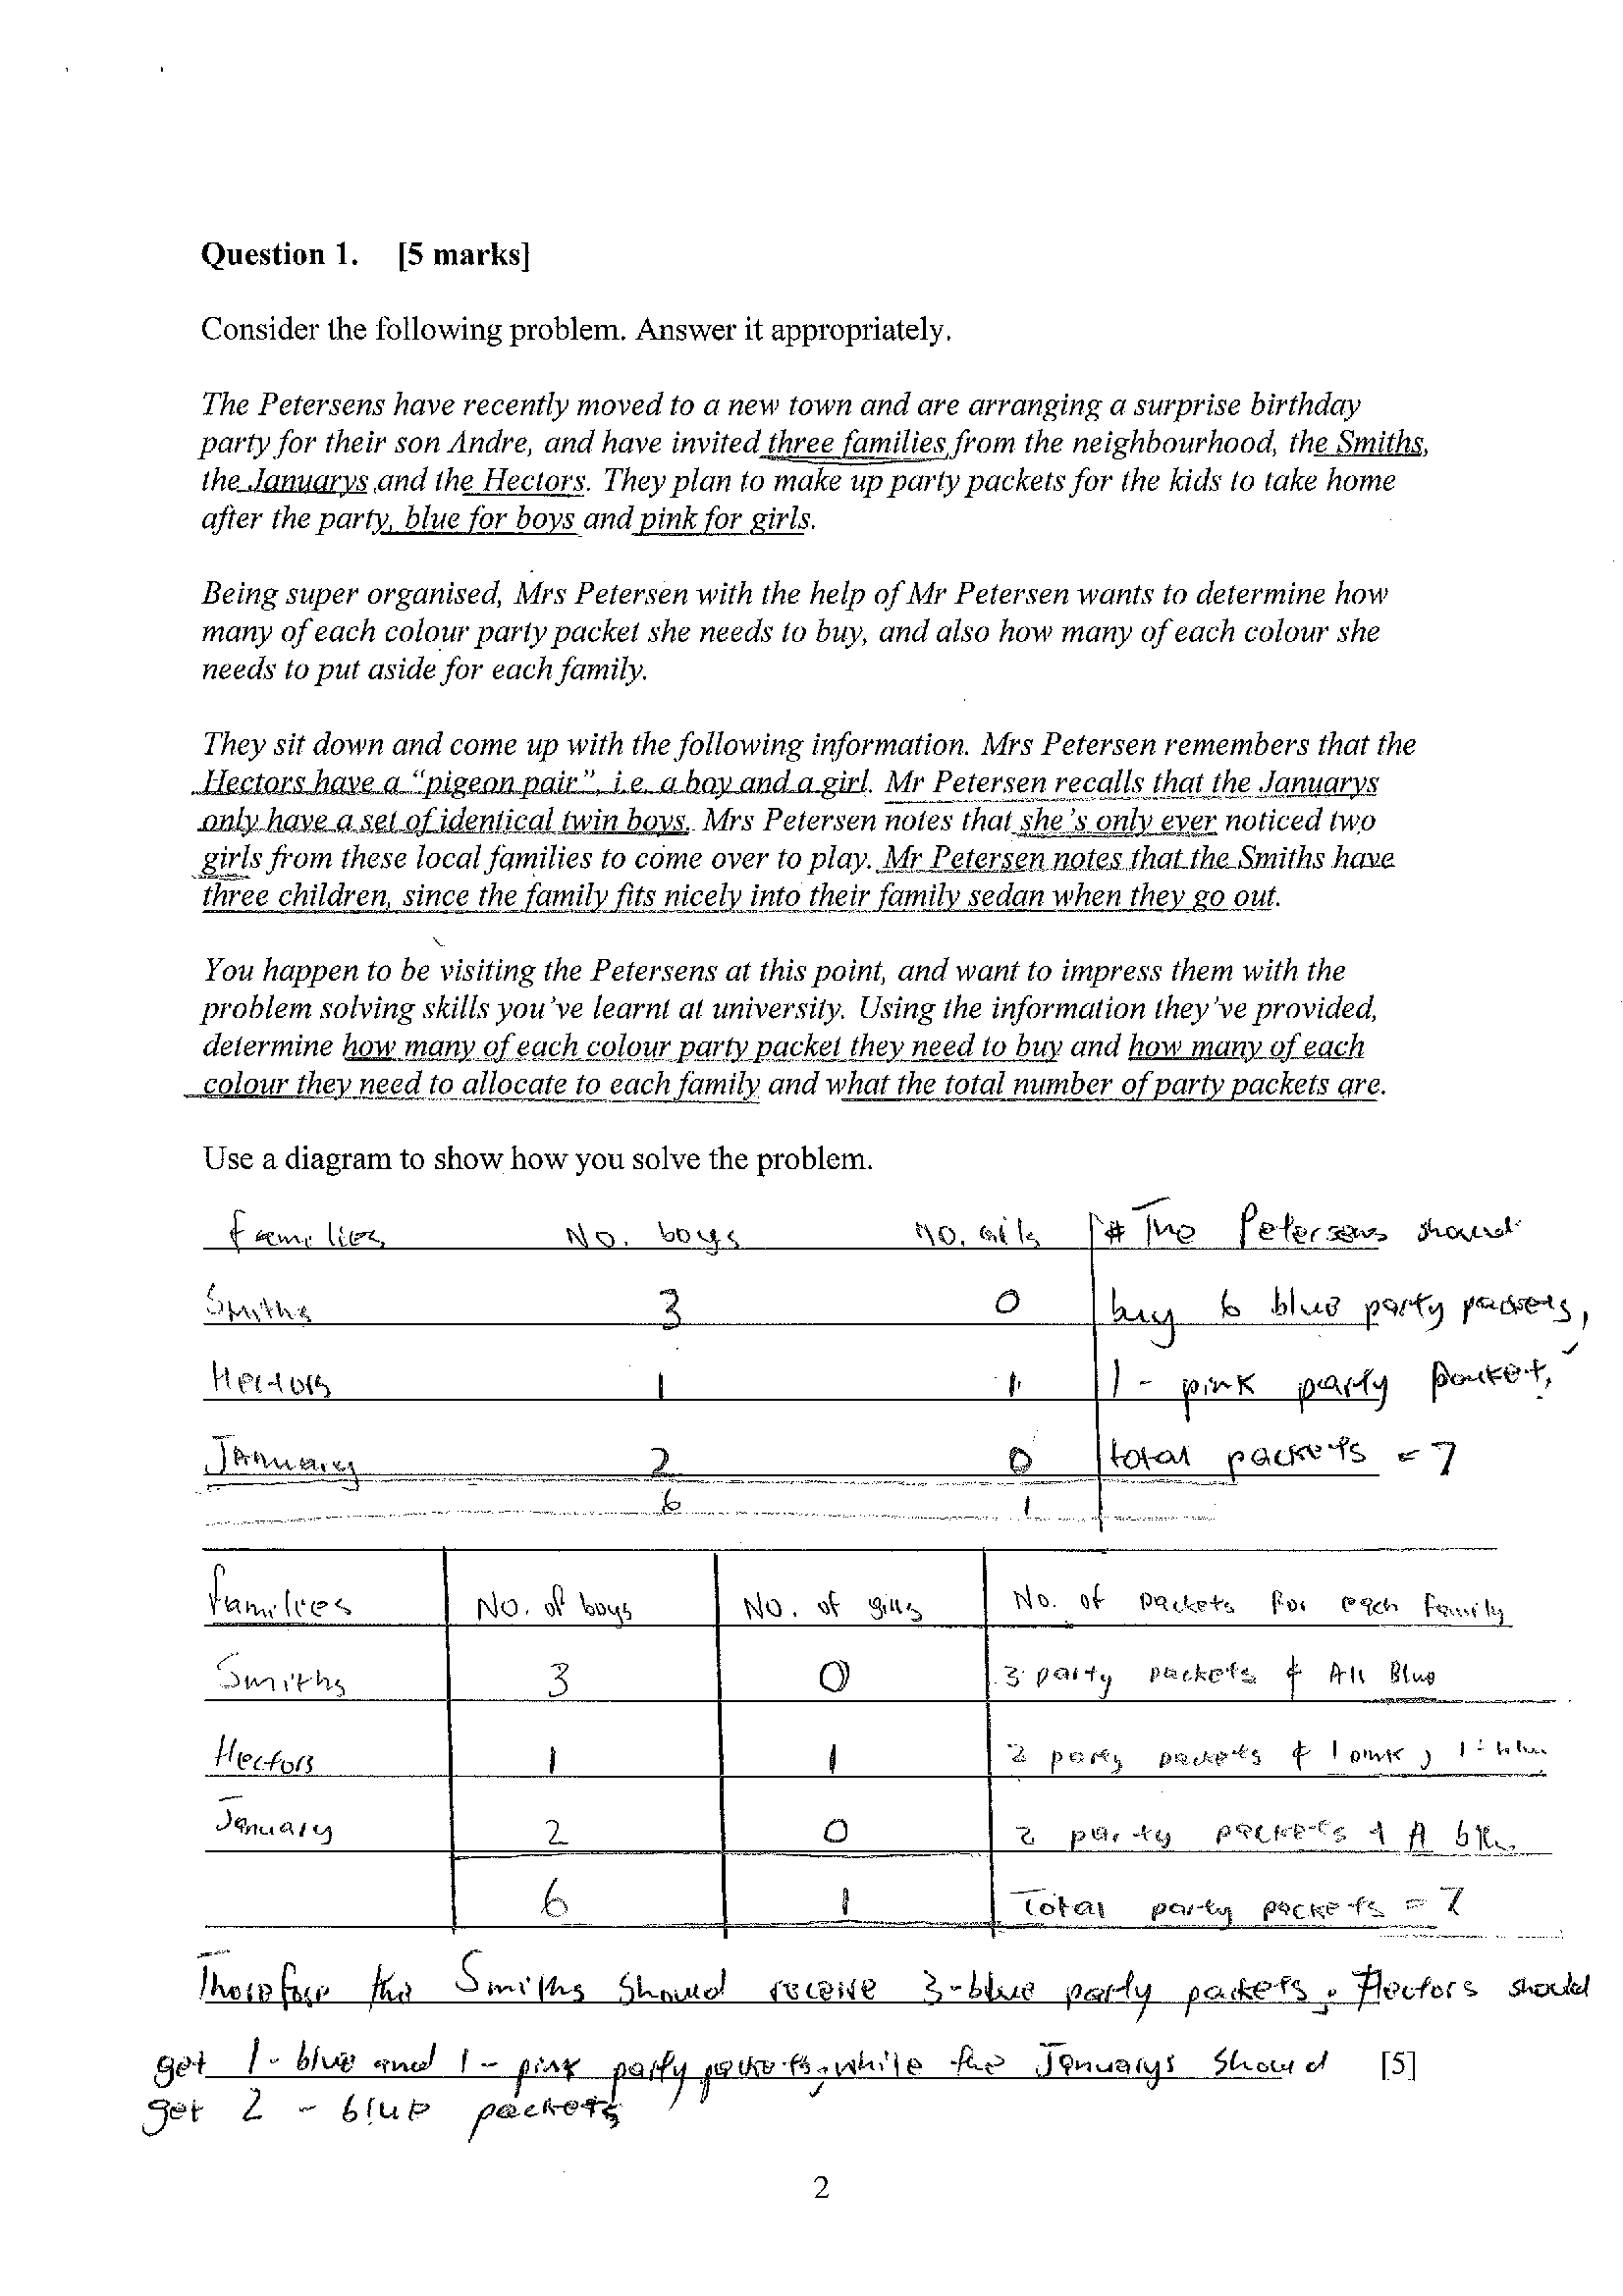 Question 1. [5 marks]
Consider the following problem. Answer it appropriately.
The Petersens have recently moved to a new town and are arranging a surprise birthday
party for their son Andre, and have invited three families from the neighbourhood, the Smiths,
the Januarys and the Hectors. They plan to make up party packets for the kids to take home
after the party, blue for boys and pink for girls.
Being super organised, Mrs Petersen with the help of Mr Petersen wants to determine how
many of each colour party packet she needs to buy, and also how many of each colour she
needs to put aside for each family.
They sit down and come up with the following information. Mrs Petersen remembers that the
Hectors have a "pigeon pair", i.e. a boy and a girl. Mr Petersen recalls that the Januarys
only have a set of identical twin boys. Mrs Petersen notes that she's only ever noticed two
girls from these local families to come over to play. Mr Petersen notes that the Smiths have
three children, since the family fits nicely into their family sedan when they go out.
You happen to be visiting the Petersens at this point, and want to impress them with the
problem solving skills you've learnt at university. Using the information they've provided,
determine how many of each colour party packet they need to buy and how many of each
colour they need to allocate to each family and what the total number of party packets are.
Use a diagram to show how you solve the problem.
Families No. boys no. # The Petersens should
Smiths 3 0 buy 6 blue party packets,
Hectors 1 1 1 - pink party packet,
January 2 0 total packets = 7
6 1
Families No. of boys No. of girls No. of packets for each family
Smiths 3 0 3 party packets & All Blue
Hectors 1 1 2 party packets & 1 pink, 1
January 2 0 2 party packets
6 1 Total party packets = 7
Therefore the Smiths should receive 3-blue party packets. Hectors should
get 1 - blue and 1 - pink party packets, while the Januarys should [5]
get 2 - blue packets
2